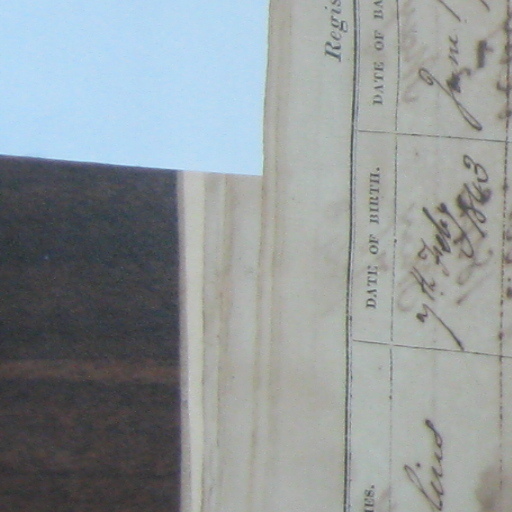 Regis
IES.
DATE OF BIRTH.
DATE OF BA
lius
7th Feby
1863
June 1